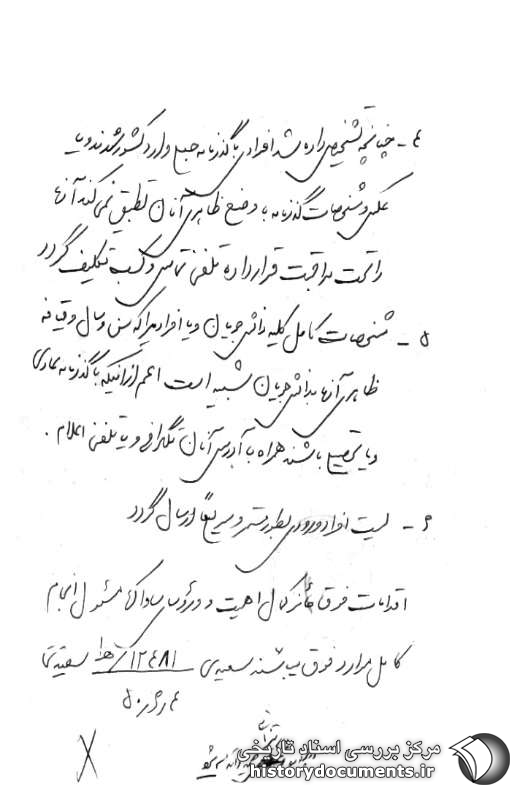 ۴ - چنانچه تشخیص داده شد افرادی با گذرنامه جمع وارد کشور شدند و یا
عکس و مشخصات گذرنامه با وضع ظاهری آنان تطبیق نمی‌کند آنها
را تحت مراقبت قرار داده تلفنی تماس و کسب تکلیف گردد
۵ - مشخصات کامل کلیه دانشجویان و یا افرادیرا که سن و سال و قیافه
ظاهری آنها بدانشجویان شبیه است اعم از اینکه با گذرنامه عادی
و یا جمع باشند همراه با آدرس آنان تلگرافی و یا تلفنی اعلام .
۶ - لیست افراد ورودی بطور مستمر و سریعاً ارسال گردد
اقدامات فوق حائز کمال اهمیت و رؤسای ساواکها مسئول انجام
کامل موارد فوق میباشند سعیدی ۱۲۴۸۱/ ه‍ ۱
مرکز بررسی اسناد تاریخی
historydocuments.ir